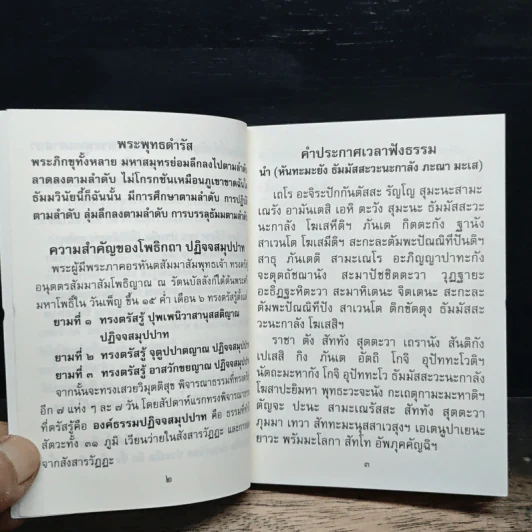 พระพุทธดำรัส
พระภิกขุทั้งหลาย มหาสมุทรย่อมลึกลงไปตามลำดับ
ลาดลงตามลำดับ ไม่โกรกชันเหมือนภูเขาขาดฉันใด
ธัมมวินัยนี้ก็ฉันนั้น มีการศึกษาตามลำดับ การปฏิบัติ
ตามลำดับ ลุ่มลึกลงตามลำดับ การบรรลุธัมมตามลำดับ
ความสำคัญของโพธิกถา ปฏิจจสมุปปาท
พระผู้มีพระภาคอรหันตสัมมาสัมพุทธเจ้า ทรงตรัสรู้
อนุตตรสัมมาสัมโพธิญาณ ณ รัตนบัลลังก์ใต้ต้นพระศรี
มหาโพธิ์ใน วันเพ็ญ ขึ้น ๑๕ ค่ำ เดือน ๖ ทรงตรัสรู้ตั้งแต่
ยามที่ ๑ ทรงตรัสรู้ ปุพเพนิวาสานุสสติญาณ
ปฏิจจสมุปปาท
ยามที่ ๒ ทรงตรัสรู้ จุตูปปาตญาณ ปฏิจจสมุปปาท
ยามที่ ๓ ทรงตรัสรู้ อาสวักขยญาณ ปฏิจจสมุปปาท
จากนั้นจะทรงเสวยวิมุตติสุข พิจารณาธรรมที่ทรงตรัสรู้
อีก ๗ แห่ง ๆ ละ ๗ วัน โดยสัปดาห์แรกทรงพิจารณาธรรม
ที่ตรัสรู้คือ องค์ธรรมปฏิจจสมุปปาท คือ ธรรมที่ทำให้
สัตวะทั้ง ๓๑ ภูมิ เวียนว่ายในสังสารวัฏฏะ และการออก
จากสังสารวัฏฏะ
๒
คำประกาศเวลาฟังธรรม
นำ (หันทะมะยัง ธัมมัสสะวะนะกาลัง ภะณา มะเส)
เถโร อะจิระปักกันตัสสะ รัญโญ สุมะนะสามะ
เณรัง อามันเตสิ เอหิ ตะวัง สุมะนะ ธัมมัสสะวะ
นะกาลัง โฆเสหีติฯ ภันเต กิตตะกัง ฐานัง
สาเวนโต โฆเสมีติฯ สะกะละตัมพะปัณณิทีปันติฯ
สาธุ ภันเตติ สามะเณโร อะภิญญาปาทะกัง
จะตุตถัชฌานัง สะมาปัชชิตตะวา วุฏฐายะ
อะธิฏฐะหิตะวา สะมาหิเตนะ จิตเตนะ สะกะละ
ตัมพะปัณณิทีปัง สาเวนโต ติกขัตตุง ธัมมัสสะ
วะนะกาลัง โฆเสสิฯ
ราชา ตัง สัททัง สุตตะวา เถรานัง สันติกัง
เปเสสิ กิง ภันเต อัตถิ โกจิ อุปัททะโวติฯ
นัตถะมะหากัง โกจิ อุปัททะโว ธัมมัสสะวะนะกาลัง
โฆสาปะยิมหา พุทธะวะจะนัง กะเถตุกามะมะหาติฯ
ตัญจะ ปะนะ สามะเณรัสสะ สัททัง สุตตะวา
ภุมมา เทวา สัททะมะนุสสาเวสุงฯ เอเตนูปาเยนะ
ยาวะ พรัมมะโลกา สัทโท อัพภุคคัญฉิฯ
๓